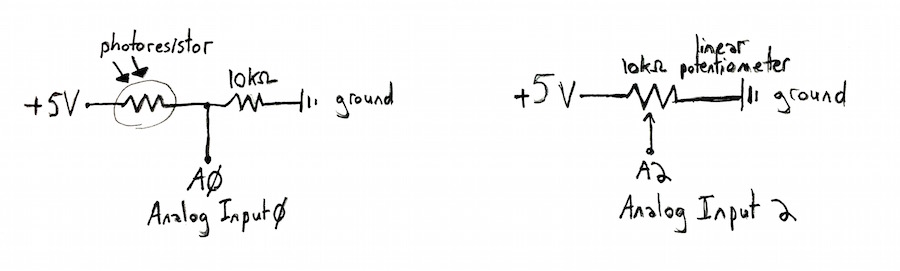 photoresistor
+5V
10kΩ
ground
AØ
Analog Input Ø
+5V
10kΩ
linear
potentiometer
ground
A2
Analog Input 2